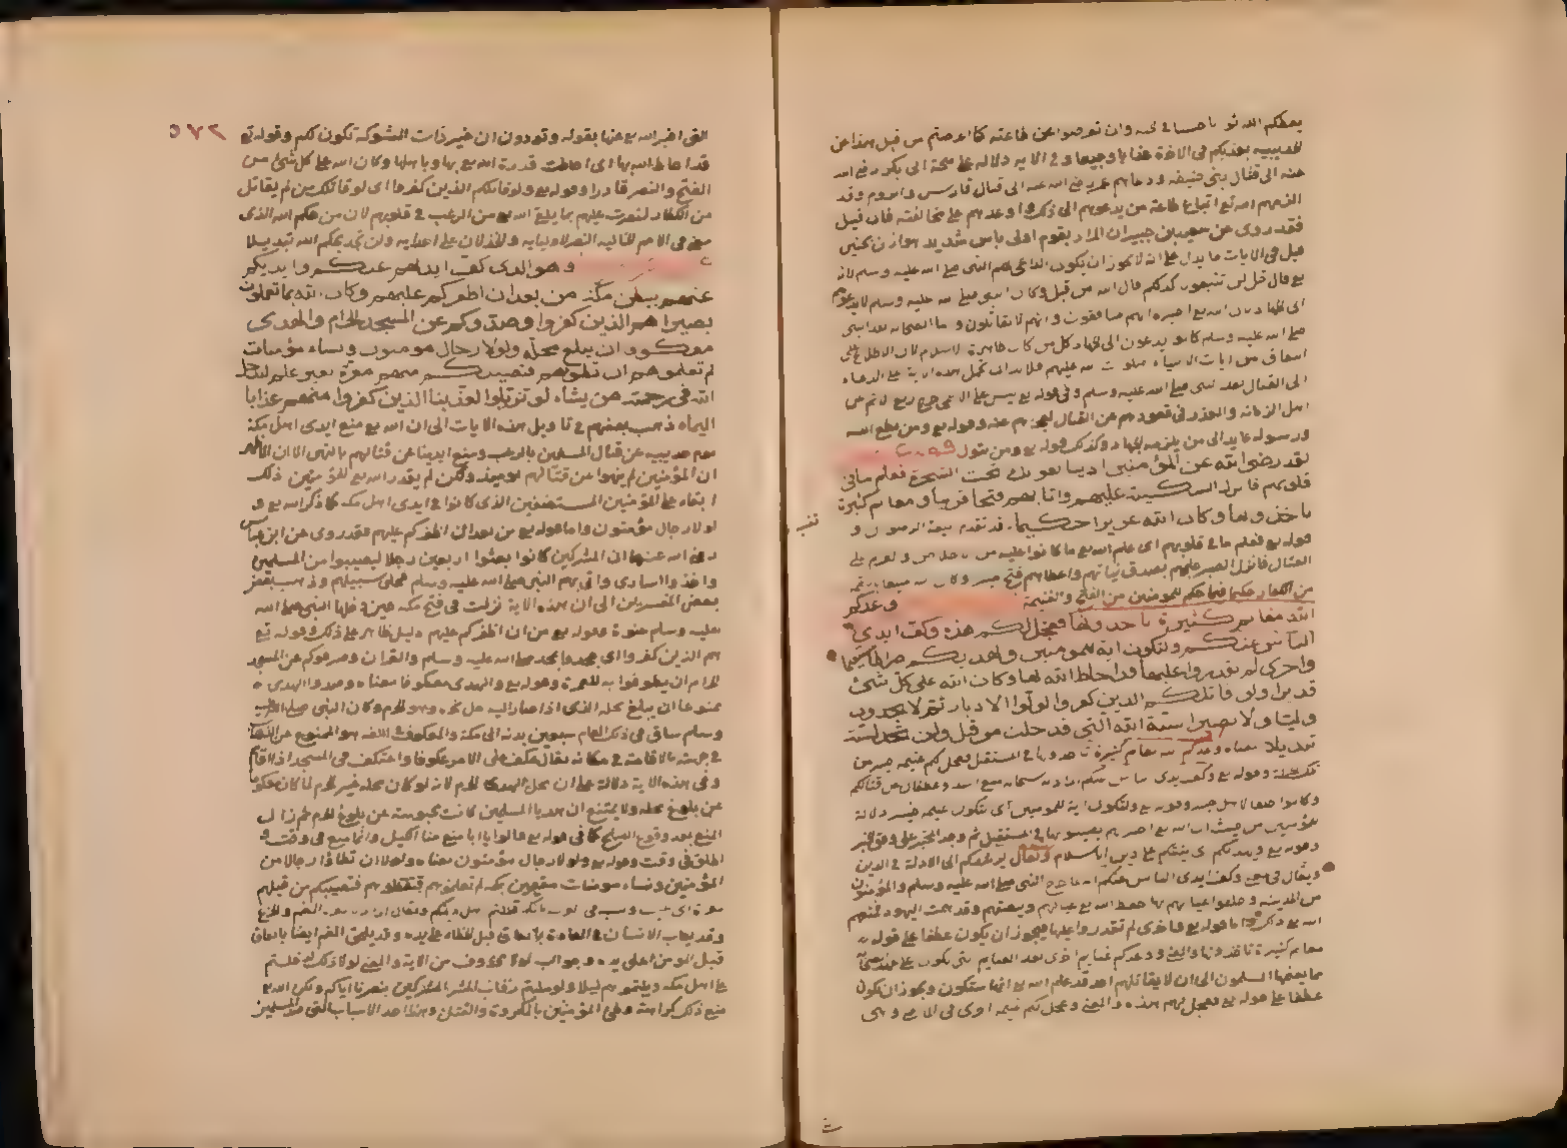 يعطكم الله ثوابا حسنا في الجنة وان تعرضوا عن طاعته كما اعرضتم من قبل هذا عن
الحديبية يعذبكم في الاخرة عذابا وجيعا وفي الاية دلالة على صحة ابي بكر رضي الله
عنه الى قتال بني حنيفه ودعاهم عمر رضي الله عنه الى قتال فارس والروم وقد
الزمهم الله تع اتباع طاعة من يدعوهم الى ذلك واوعدهم على مخالفته فان قيل
فقد روي عن سعيد بن جبير ان المراد بقوم اولى باس شديد هوازن بحنين
قيل في الايات ما يدل على انه لا يجوز ان يكون الداعي لهم النبي صلى الله عليه وسلم لانه
تع قال قل لن تتبعونا كذلكم قال الله من قبل وكان النبي صلى الله عليه وسلم لا يدعوهم
الى الجهاد لان الله تع اخبره انهم منافقون وانهم لا يقاتلون
صلى الله عليه وسلم كانوا يدعون الى الجهاد كل من كان ظاهره الاسلام لان الاطلاع على
الى القتال بعد النبي صلى الله عليه وسلم وفي قوله تع ليس على الاعمى حرج رفع لاثم عن
اهل الزمانة والعذر في قعودهم عن القتال لعجزهم عنه وقوله تع ومن يطع الله
ورسوله عايد الى من يلزمه الجهاد وكذلك قوله تع ومن يتول قوله تع
لقد رضي الله عن المؤمنين اذ يبايعونك تحت الشجرة فعلم ما في
قلوبهم فانزل السكينة عليهم واثابهم فتحا قريبا ومغانم كثيرة
ياخذونها وكان الله عزيزا حكيما قد تقدم بيعة الرضوان و
قوله تع فعلم ما في قلوبهم اي علم الله تع ما كانوا عليه من الاخلاص والعزم على
القتال فانزل الصبر عليهم بصدق نياتهم واعطاهم فتح خيبر وكان الله منيعا بالنقمة
من الكفار حكيما فيما حكم للمؤمنين من الفتح والغنيمة وعدكم
الله مغانم كثيرة تاخذونها فعجل لكم هذه وكف ايدي
الناس عنكم ولتكون اية للمومنين ويهديكم صراطا مستقيما
واخرى لم تقدروا عليها قد احاط الله بها وكان الله على كل شئ
قديرا ولو قاتلكم الذين كفروا لولوا الادبار ثم لا يجدون
وليا ولا نصيرا سنة الله التي قد خلت من قبل ولن تجد لسنة
تبديلا معناه وعدكم الله مغانم كثيرة تاخذونها في المستقبل فعجل لكم غنيمة خيبر من
وكانوا حلفا لاهل خيبر وقوله تع ولتكون اية للمومنين اي لتكون غنيمة خيبر دلالة
للمؤمنين من حيث ان الله تع اخبرهم يصيبونها في المستقبل ثم وجد المخبر على وفق الخبر
وقوله تع ويهديكم اي يثبتكم على دين الاسلام ويقال يرشدكم الى الادلة في الدين
ويقال في معنى وكف ايدي الناس عنكم انه لما خرج النبي صلى الله عليه وسلم والمؤمنون
من المدينة وخلفوا عيالهم بها حفظ الله تع عيالهم وبيضتهم وقد همت اليهود فمنعهم
الله تع ذلك واما قوله تع واخرى لم تقدروا عليها فيجوز ان يكون عطفا على قوله
مغانم كثيرة تاخذونها والمعنى وعدكم غنايم اخرى بعد الغنايم
مما يفتحها المسلمون الى ان لا يقاتلهم احد قد علم الله تع انها ستكون ويجوز ان يكون
عطفا على قوله تع فعجل لكم هذه والمعنى وعجل لكم غنيمة اخرى في الارض وهي
٥٧٢
التي اخبر الله تع عنها بقوله وتودون ان غير ذات الشوكة تكون لكم وقوله تع
قد احاط الله بها اي احاطت قدرة الله تع بها وباهلها وكان الله على كل شئ من
الفتح والنصر قادرا وقوله تع ولو قاتلكم الذين كفروا اي لو قاتلكم من لم يقاتل
من الكفار لنصرت عليهم بما يلقي الله تع من الرعب في قلوبهم لان من حكم الله الذي
مضى في الامم الخالية النصر لاوليايه والخذلان على اعدايه ولن تجد لحكم الله تبديلا
وهو الذي كف ايديهم عنكم وايديكم
عنهم ببطن مكة من بعد ان اظفركم عليهم وكان الله بما تعملون
بصيرا هم الذين كفروا وصدوكم عن المسجد الحرام والهدي
معكوفا ان يبلغ محله ولولا رجال مومنون ونساء مؤمنات
لم تعلموهم ان تطؤهم فتصيبكم منهم معرة بغير علم ليدخل
الله في رحمته من يشاء لو تزيلوا لعذبنا الذين كفروا منهم عذابا
اليما ذهب بعضهم في تاويل هذه الايات الى ان الله تع منع ايدي اهل مكة
يوم حديبية عن قتال المسلمين بالرعب ومنع ايدينا عن قتالهم بالنهي الا ان الاظهر
ان المؤمنين لم ينهوا عن قتالهم يومئذ ولكن لم يقدر الله تع للمؤمنين ذلك
ابقاء على المؤمنين المستضعفين الذي كانوا في ايدي اهل مكة كما ذكر الله تع و
لولا رجال مؤمنون واما قوله تع من بعد ان اظفركم عليهم فقد روي عن ابن عباس
رضي الله عنهما ان المشركين كانوا بعثوا اربعين رجلا ليصيبوا من المسلمين
واخذوا اسارى واتى بهم النبي صلى الله عليه وسلم فخلى سبيلهم وذهب بعض
بعض المفسرين الى ان هذه الاية نزلت في فتح مكة حين دخلها النبي صلى الله
عليه وسلم عنوة وقوله تع من ان اظفركم عليهم دليل ظاهر على ذلك وقوله تع
هم الذين كفروا اي جحدوا بمحمد صلى الله عليه وسلم والقران وصرفوكم عن المسجد
الحرام ان يطوفوا به للعمرة وقوله تع والهدي معكوفا معناه وصدوا الهدي
ممنوعا ان يبلغ محله الذي اذا صار اليه حل نحره وهو الحرم وكان النبي صلى الله عليه
وسلم ساق في ذلك العام سبعين بدنة الى مكة والمعكوف في اللغة هو الممنوع عن الذهاب
في جهته بالاقامة في مكانه يقال عكف على الامر عكوفا واعتكف في المسجد اذا اقام
وفي هذه الاية دلالة على ان محل الهدي الحرم لانه لو كان محله غير الحرم لما كان معكوفا
عن بلوغ محله ولا يمتنع ان هدايا المسلمين كانت محبوسة عن بلوغ الحرم ثم زال
المنع بعد وقوع الصلح كما في قوله تع قالوا يا ابانا منع منا الكيل وانما منع في وقت و
اطلق في وقت وقوله تع ولولا رجال مؤمنون معناه ولولا ان تطاوا رجالا من
المؤمنين ونساء مومنات مقيمين بمكة لم تعلموهم فتقتلوهم فتصيبكم من قبلهم
وقد يعاب الانسان في العادة باتفاق قتل الخطاء على يده وقد يلحق الغم ايضا باتفاق
قتل المومن على يده وجواب لولا محذوف من الاية والمعنى لولا ذلك لدخلتم
على اهل مكة ووطئتموهم ليلا ولوضعتم رقاب المشركين بنصرنا اياكم ولكن الله تع
منع ذلك كراهة وطئ المؤمنين بالمكروه والقتل وهذا احد الاسباب التي